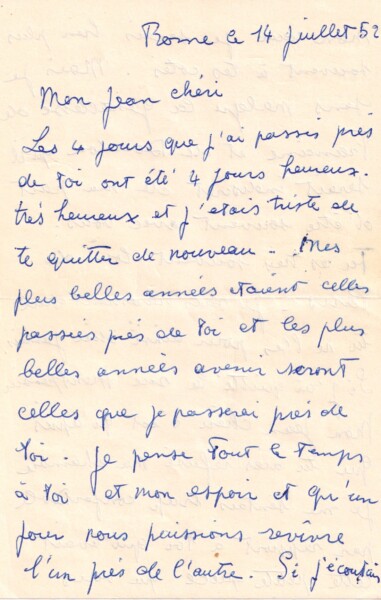 Rome le 14 juillet 52
Mon Jean chéri
Les 4 jours que j'ai passés près
de toi ont été 4 jours heureux.
très heureux et j'étais triste de
te quitter de nouveau - Mes
plus belles années étaient celles
passées près de toi et les plus
belles années avenir seront
celles que je passerai près de
toi. Je pense tout le temps
à toi et mon espoir et qu'un
jour nous puissions revivre
l'un près de l'autre. Si j'écoutais